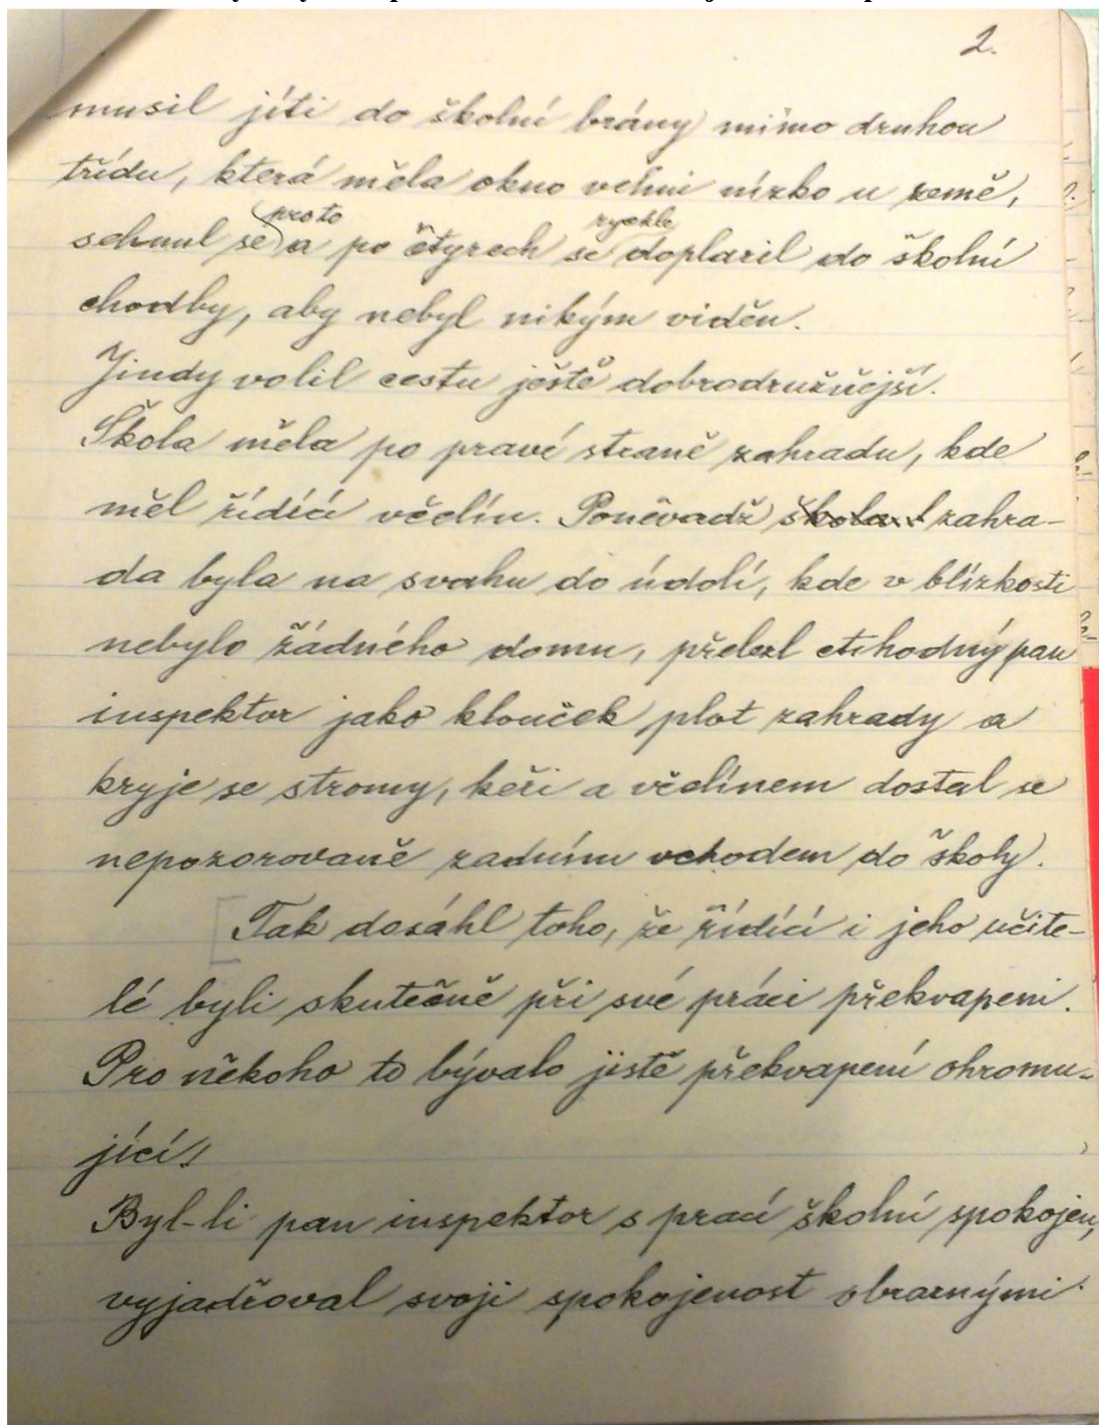 2.
musil jíti do školní brány mimo druhou
třídu, která měla okno velmi nízko u země,
schnul se proto a po čtyrech se rychle doplazil do školní
chodby, aby nebyl nikým viděn.
Jindy volil cestu ještě dobrodružnější.
Škola měla po pravé straně zahradu, kde
měl řídící včelín. Poněvadž škola zahra-
da byla na svahu do údolí, kde v blízkosti
nebylo žádného domu, přelezl ctihodný pan
inspektor jako klouček plot zahrady a
kryje se stromy, keři a včelínem dostal se
nepozorovaně zadním vchodem do školy.
Tak dosáhl toho, že řídící i jeho učite-
lé byli skutečně při své práci překvapeni.
Pro někoho to bývalo jistě překvapení ohromu-
jící!
Byl-li pan inspektor s prací školní spokojen,
vyjadřoval svoji spokojenost obraznými